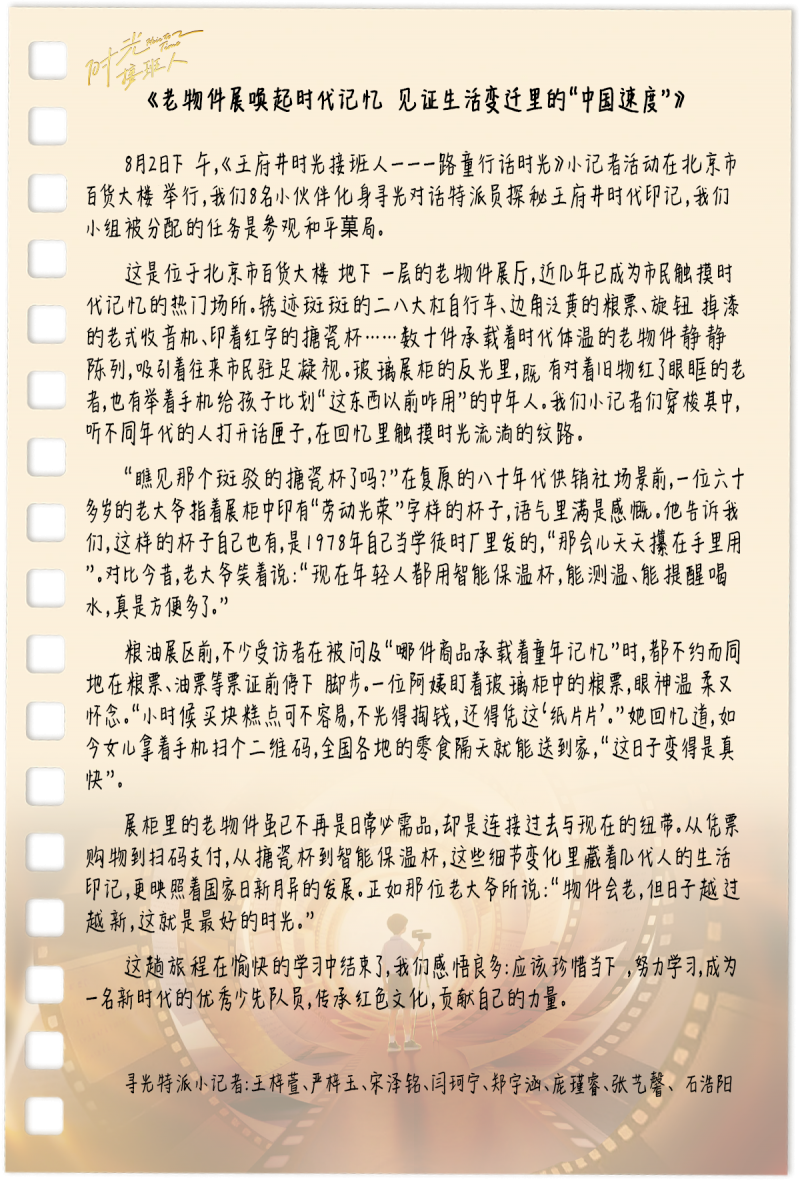 时光
接班人
《老物件展唤起时代记忆 见证生活变迁里的“中国速度”》
8月2日下午,《王府井时光接班人———路童行话时光》小记者活动在北京市
百货大楼举行,我们8名小伙伴化身寻光对话特派员探秘王府井时代印记,我们
小组被分配的任务是参观和平菓局。
这是位于北京市百货大楼地下一层的老物件展厅,近几年已成为市民触摸时
代记忆的热门场所。锈迹斑斑的二八大杠自行车、边角泛黄的粮票、旋钮掉漆
的老式收音机、印着红字的搪瓷杯……数十件承载着时代体温的老物件静静
陈列,吸引着往来市民驻足凝视。玻璃展柜的反光里,既有对着旧物红了眼眶的老
者,也有举着手机给孩子比划“这东西以前咋用”的中年人。我们小记者们穿梭其中,
听不同年代的人打开话匣子,在回忆里触摸时光流淌的纹路。
“瞧见那个斑驳的搪瓷杯了吗?”在复原的八十年代供销社场景前,一位六十
多岁的老大爷指着展柜中印有“劳动光荣”字样的杯子,语气里满是感慨。他告诉我
们,这样的杯子自己也有,是1978年自己当学徒时厂里发的,“那会儿天天攥在手里用
”。对比今昔,老大爷笑着说:“现在年轻人都用智能保温杯,能测温、能提醒喝
水,真是方便多了。”
粮油展区前,不少受访者在被问及“哪件商品承载着童年记忆”时,都不约而同
地在粮票、油票等票证前停下脚步。一位阿姨盯着玻璃柜中的粮票,眼神温柔又
怀念。“小时候买块糕点可不容易,不光得掏钱,还得凭这‘纸片片’。”她回忆道,如
今女儿拿着手机扫个二维码,全国各地的零食隔天就能送到家,“这日子变得是真
快”。
展柜里的老物件虽已不再是日常必需品,却是连接过去与现在的纽带。从凭票
购物到扫码支付,从搪瓷杯到智能保温杯,这些细节变化里藏着几代人的生活
印记,更映照着国家日新月异的发展。正如那位老大爷所说:“物件会老,但日子越过
越新,这就是最好的时光。”
这趟旅程在愉快的学习中结束了,我们感悟良多:应该珍惜当下,努力学习,成为
一名新时代的优秀少先队员,传承红色文化,贡献自己的力量。
寻光特派小记者:王梓萱、严梓玉、宋泽铭、闫珂宁、郑宇涵、庞瑾睿、张艺馨、石浩阳